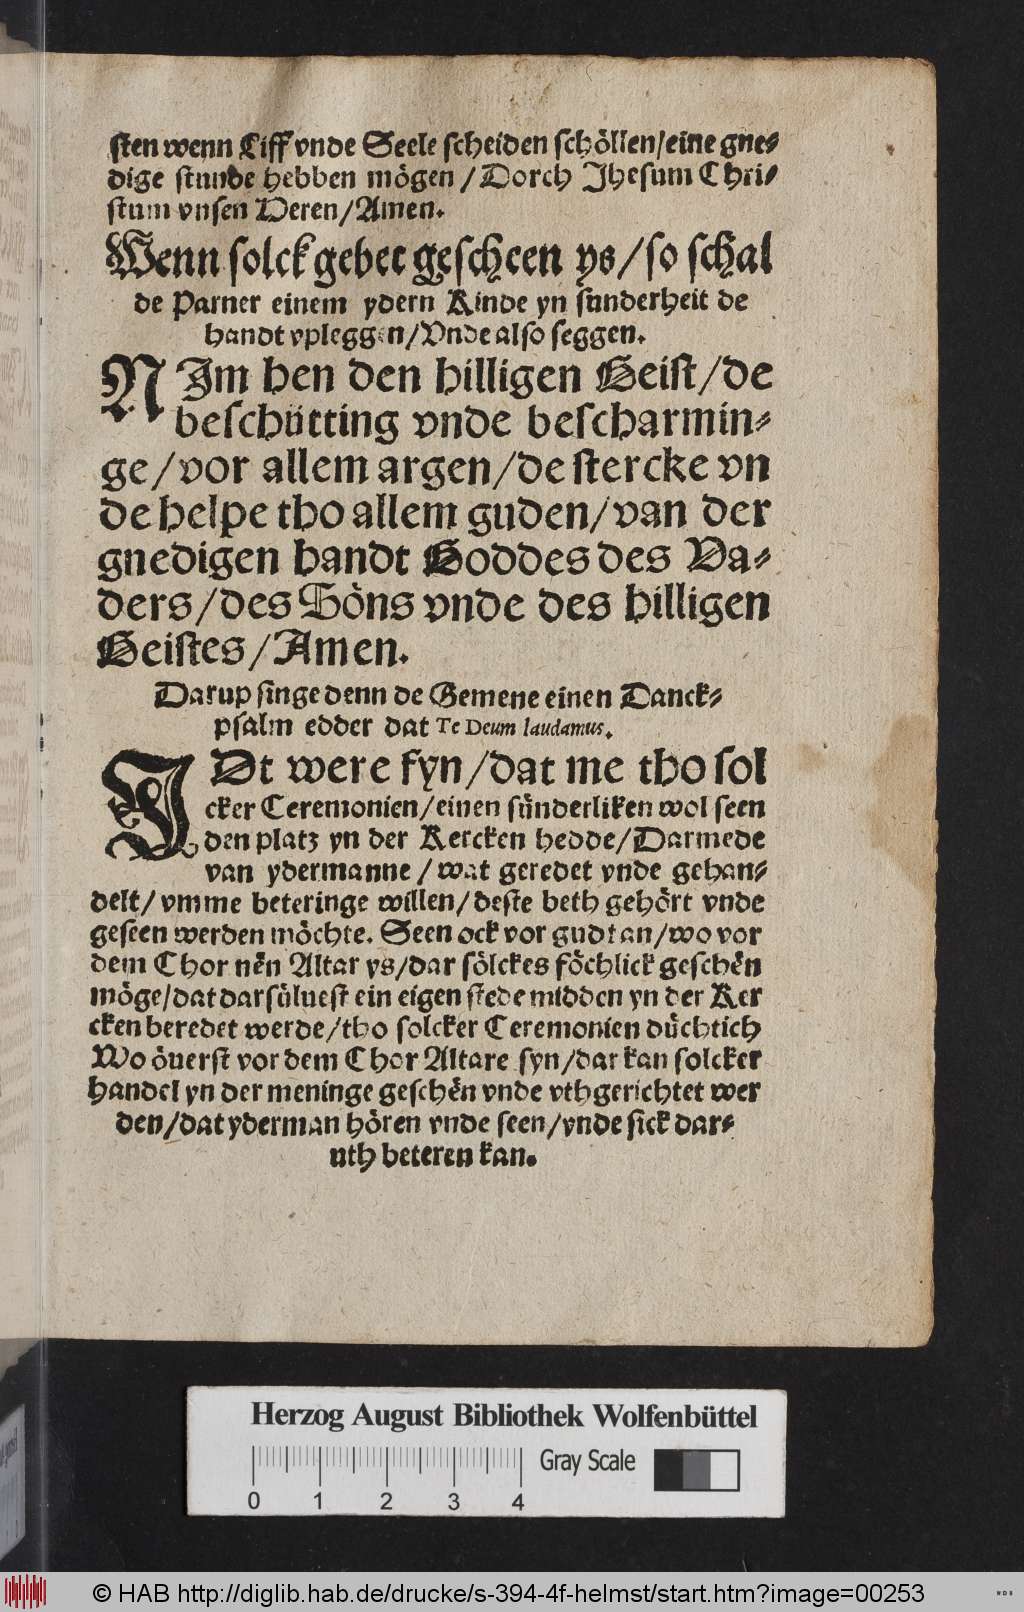 sten wenn Liff vnde Seele scheiden schöllen/eine gne⸗
dige stunde hebben mögen/Dorch Jhesum Chri⸗
stum vnsen Heren/Amen.
Wenn solck gebet gescheen ys/so schal
de Parner einem ydern Kinde yn sunderheit de
handt vpleggen/Vnde also seggen.
NJm hen den hilligen Geist/de
beschütting vnde bescharmin⸗
ge/vor allem argen/de stercke vn
de helpe tho allem guden/van der
gnedigen handt Goddes des Va⸗
ders/des Söns vnde des hilligen
Geistes/Amen.
Darup singe denn de Gemene einen Danck⸗
psalm edder dat Te Deum laudamus.
JDt were fyn/dat me tho sol
cker Ceremonien/einen sünderliken wol seen
den platz yn der Kercken hedde/Darmede
van ydermanne/wat geredet vnde gehan⸗
delt/vmme beteringe willen/deste beth gehört vnde
geseen werden möchte. Seen ock vor gudt an/wo vor
dem Chor nên Altar ys/dar sölckes föchlick geschên
möge/dat darsüluest ein eigen stede midden yn der Ker
cken beredet werde/tho solcker Ceremonien düchtich
Wo öuerst vor dem Chor Altare syn/dar kan solcker
handel yn der meninge geschên vnde vthgerichtet wer
den/dat yderman hören vnde seen/vnde sick dar⸗
uth beteren kan.
Herzog August Bibliothek Wolfenbüttel
Gray Scale
0 1 2 3 4
© HAB http://diglib.hab.de/drucke/s-394-4f-helmst/start.htm?image=00253